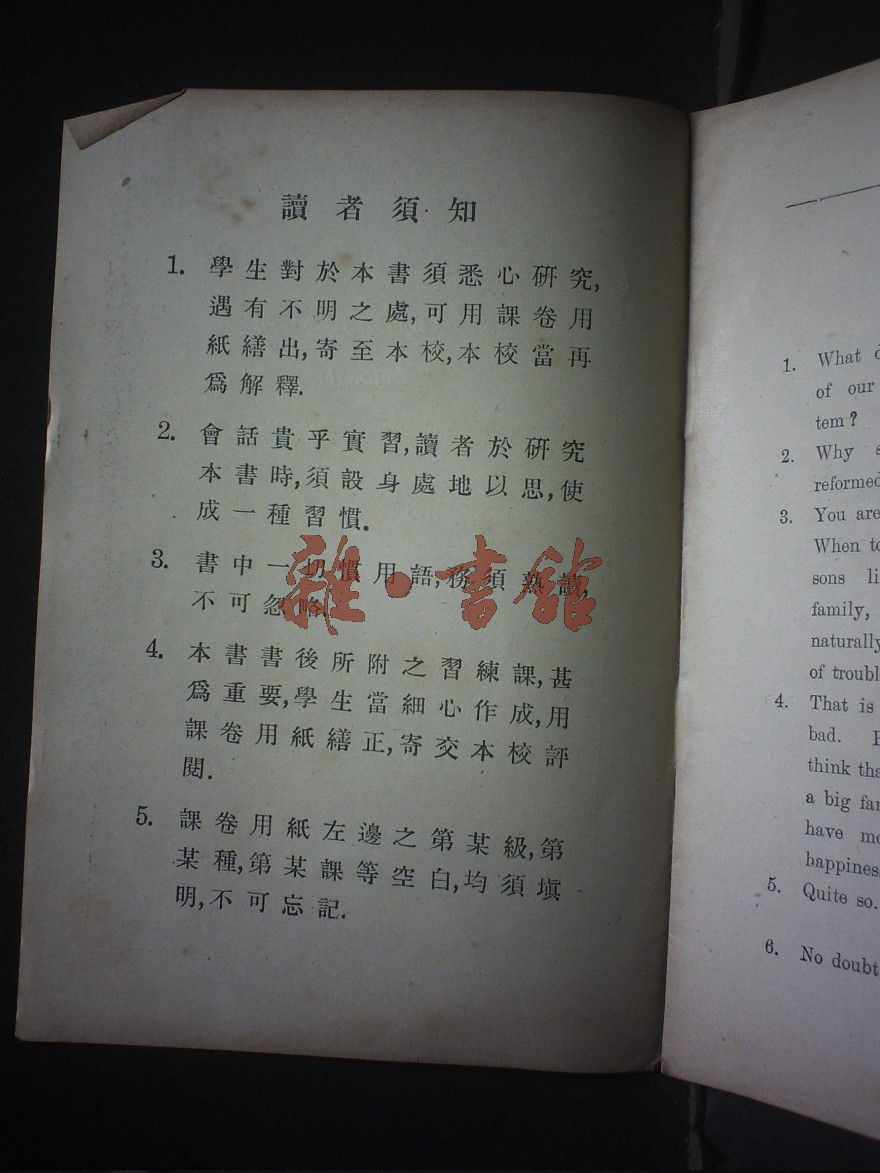 讀者須知
1. 學生對於本書須悉心研究,
遇有不明之處,可用課卷用
紙繕出,寄至本校,本校當再
爲解釋.
2. 會話貴乎實習,讀者於研究
本書時,須設身處地以思,使
成一種習慣.
3. 書中一切慣用語,務須熟讀,
不可忽略.
4. 本書書後所附之習練課,甚
爲重要,學生當細心作成,用
課卷用紙繕正,寄交本校評
閱.
5. 課卷用紙左邊之第某級,第
某種,第某課等空白,均須塡
明,不可忘記.
雜·書館
1. What
of our
tem?
2. Why
reformed
3. You are
When
sons
family,
naturally
of
4. That is
bad.
think
a big
have
5. Quite so.
6. No doubt